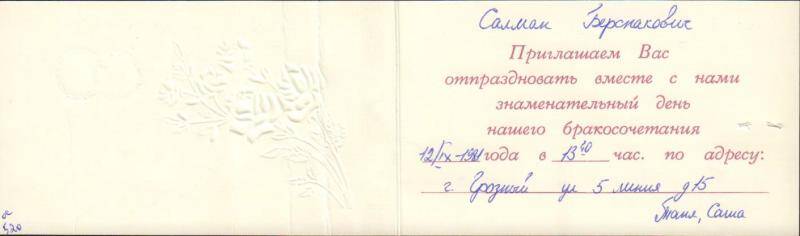 Салман
Приглашаем Вас
отпраздновать вместе с нами
знаменательный день
нашего бракосочетания
года в 13 час. по адресу:
г. Грозный ул 5 линия д 15
Таня, Саша